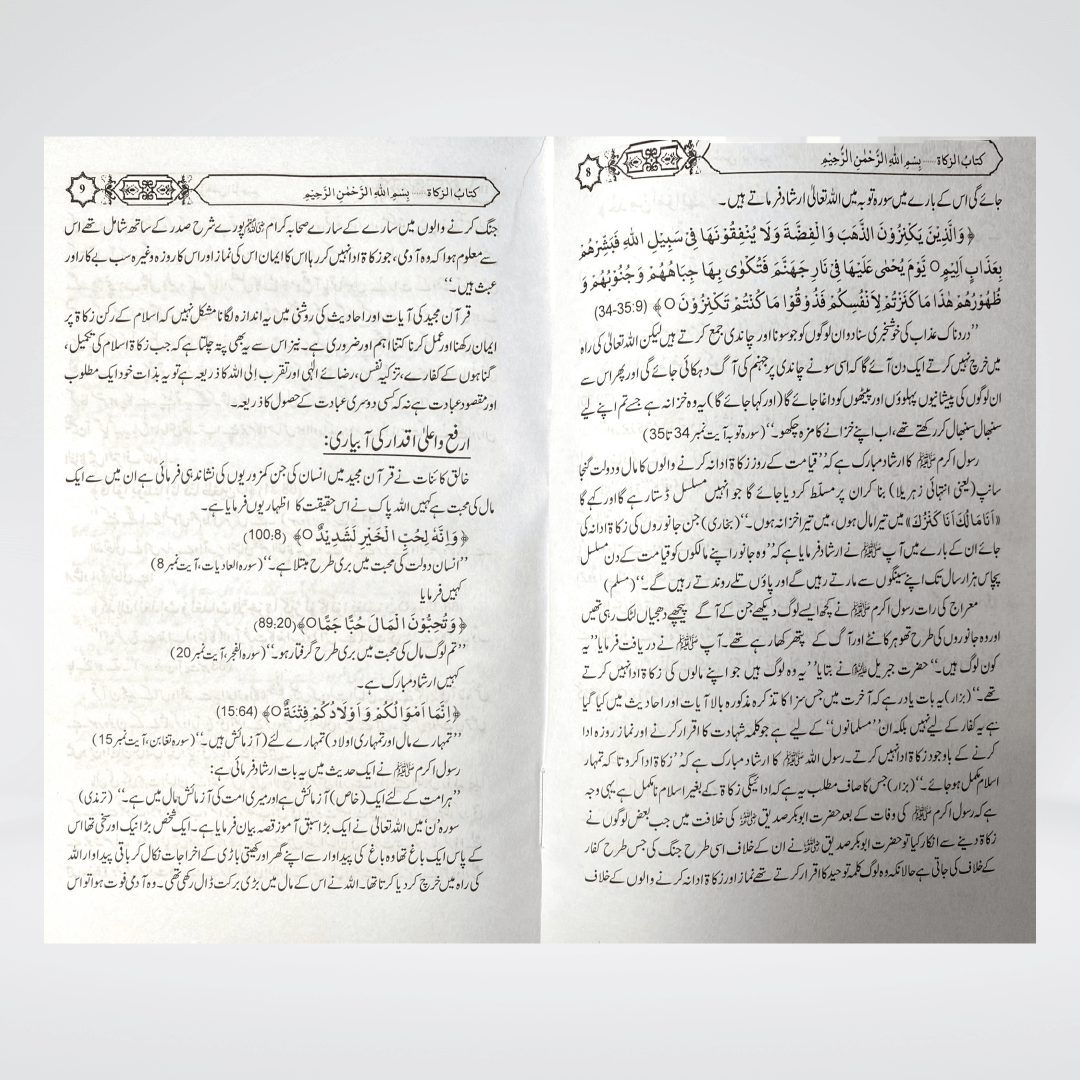 کتاب الزکاۃ......بِسْمِ اللّٰہِ الرَّحْمٰنِ الرَّحِیْمِ
8
جائے گی اس کے بارے میں سورہ توبہ میں اللہ تعالیٰ ارشاد فرماتے ہیں۔
﴿وَالَّذِیْنَ یَکْنِزُوْنَ الذَّھَبَ وَالْفِضَّۃَ وَلَا یُنْفِقُوْنَھَا فِیْ سَبِیْلِ اللّٰہِ فَبَشِّرْھُمْ
بِعَذَابٍ اَلِیْمٍ○ یَوْمَ یُحْمٰی عَلَیْھَا فِیْ نَارِ جَھَنَّمَ فَتُکْوٰی بِھَا جِبَاھُھُمْ وَ جُنُوْبُھُمْ وَ
ظُھُوْرُھُمْ ھٰذَا مَا کَنَزْتُمْ لِاَنْفُسِکُمْ فَذُوْقُوْا مَا کُنْتُمْ تَکْنِزُوْنَ ○﴾ (34-35:9)
’’دردناک عذاب کی خوشخبری سنادو ان لوگوں کو جو سونا اور چاندی جمع کرتے ہیں لیکن اللہ تعالیٰ کی راہ
میں خرچ نہیں کرتے ایک دن آئے گا کہ اسی سونے چاندی پر جہنم کی آگ دہکائی جائے گی اور پھر اس سے
ان لوگوں کی پیشانیوں پہلوؤں اور پیٹھوں کو داغا جائے گا (اور کہا جائے گا) یہ وہ خزانہ ہے جسے تم اپنے لیے
سنبھال سنبھال کر رکھتے تھے، اب اپنے خزانے کا مزہ چکھو۔‘‘ (سورہ توبہ آیت نمبر 34 تا 35)
رسول اکرم ﷺ کا ارشاد مبارک ہے کہ ’’قیامت کے روز زکاۃ ادا نہ کرنے والوں کا مال و دولت گنجا
سانپ (یعنی انتہائی زہریلا) بنا کر ان پر مسلط کر دیا جائے گا جو انہیں مسلسل ڈستا رہے گا اور کہے گا
«اَنَا مَالُکَ اَنَا کَنْزُکَ» میں تیرا مال ہوں، میں تیرا خزانہ ہوں۔‘‘ (بخاری) جن جانوروں کی زکاۃ ادا نہ کی
جائے ان کے بارے میں آپ ﷺ نے ارشاد فرمایا ہے کہ ’’وہ جانور اپنے مالکوں کو قیامت کے دن مسلسل
پچاس ہزار سال تک اپنے سینگوں سے مارتے رہیں گے اور پاؤں تلے روندتے رہیں گے۔‘‘ (مسلم)
معراج کی رات رسول اکرم ﷺ نے کچھ ایسے لوگ دیکھے جن کے آگے پیچھے دھجیاں لٹک رہی تھیں
اور وہ جانوروں کی طرح تھوہر کانٹے اور آگ کے پتھر کھا رہے تھے۔ آپ ﷺ نے دریافت فرمایا ’’یہ
کون لوگ ہیں۔‘‘ حضرت جبریل نے بتایا ’’یہ وہ لوگ ہیں جو اپنے مالوں کی زکاۃ ادا نہیں کرتے
تھے۔‘‘ (بزار) یہ بات یاد رہے کہ آخرت میں جس سزا کا تذکرہ مذکورہ بالا آیات اور احادیث میں کیا گیا
ہے یہ کفار کے لیے نہیں بلکہ ان ’’مسلمانوں‘‘ کے لیے ہے جو کلمہ شہادت کا اقرار کرنے اور نماز روزہ ادا
کرنے کے باوجود زکاۃ ادا نہیں کرتے۔ رسول اللہ ﷺ کا ارشاد مبارک ہے کہ ’’زکاۃ ادا کرو تا کہ تمہارا
اسلام مکمل ہو جائے۔‘‘ (بزار) جس کا صاف مطلب یہ ہے کہ ادائیگی زکاۃ کے بغیر اسلام نامکمل ہے یہی وجہ
ہے کہ رسول اکرم ﷺ کی وفات کے بعد حضرت ابوبکر صدیق کی خلافت میں جب بعض لوگوں نے
زکاۃ دینے سے انکار کیا تو حضرت ابوبکر صدیق نے ان کے خلاف اسی طرح جنگ کی جس طرح کفار
کے خلاف کی جاتی ہے حالانکہ وہ لوگ کلمہ توحید کا اقرار کرتے تھے نماز اور زکاۃ ادا نہ کرنے والوں کے خلاف
کتاب الزکاۃ......بِسْمِ اللّٰہِ الرَّحْمٰنِ الرَّحِیْمِ
9
جنگ کرنے والوں میں سارے کے سارے صحابہ کرام پورے شرح صدر کے ساتھ شامل تھے اس
سے معلوم ہوا کہ وہ آدمی، جو زکاۃ ادا نہیں کر رہا اس کا ایمان اس کی نماز اور اس کا روزہ وغیرہ سب بے کار اور
عبث ہیں۔‘‘
قرآن مجید کی آیات اور احادیث کی روشنی میں یہ اندازہ لگانا مشکل نہیں کہ اسلام کے رکن زکاۃ پر
ایمان رکھنا اور عمل کرنا کتنا اہم اور ضروری ہے۔ نیز اس سے یہ بھی پتہ چلتا ہے کہ جب زکاۃ اسلام کی تکمیل،
گناہوں کے کفارے، تزکیہ نفس، رضائے الٰہی اور تقرب الی اللہ کا ذریعہ ہے تو یہ بذات خود ایک مطلوب
اور مقصود عبادت ہے نہ کہ کسی دوسری عبادت کے حصول کا ذریعہ۔
ارفع و اعلیٰ اقدار کی آبیاری:
خالق کائنات نے قرآن مجید میں انسان کی جن کمزوریوں کی نشاندہی فرمائی ہے ان میں سے ایک
مال کی محبت ہے کہیں اللہ پاک نے اس حقیقت کا اظہار یوں فرمایا ہے۔
﴿وَ اِنَّہٗ لِحُبِّ الْخَیْرِ لَشَدِیْدٌ ○﴾ (100:8)
’’انسان دولت کی محبت میں بری طرح مبتلا ہے۔‘‘ (سورہ العادیات، آیت نمبر 8)
کہیں فرمایا
﴿وَ تُحِبُّوْنَ الْمَالَ حُبًّا جَمًّا○﴾ (89:20)
’’تم لوگ مال کی محبت میں بری طرح گرفتار ہو۔‘‘ (سورہ الفجر، آیت نمبر 20)
کہیں ارشاد مبارک ہے۔
﴿اِنَّمَا اَمْوَالُکُمْ وَ اَوْلَادُکُمْ فِتْنَۃٌ ○﴾ (15:64)
’’تمہارے مال اور تمہاری اولاد) تمہارے لئے (آزمائش ہیں۔‘‘ (سورہ تغابن، آیت نمبر 15)
رسول اکرم ﷺ نے ایک حدیث میں یہ بات ارشاد فرمائی ہے:
’’ہر امت کے لئے ایک (خاص) آزمائش ہے اور میری امت کی آزمائش مال میں ہے۔‘‘ (ترمذی)
سورہ ن میں اللہ تعالیٰ نے ایک بڑا سبق آموز قصہ بیان فرمایا ہے۔ ایک شخص بڑا نیک اور سخی تھا اس
کے پاس ایک باغ تھا وہ باغ کی پیداوار سے اپنے گھر اور کھیتی باڑی کے اخراجات نکال کر باقی پیداوار اللہ
کی راہ میں خرچ کر دیا کرتا تھا۔ اللہ نے اس کے مال میں بڑی برکت ڈال رکھی تھی۔ وہ آدمی فوت ہوا تو اس